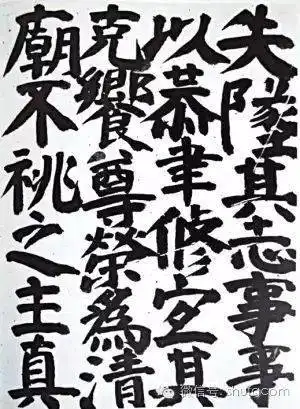 失墜其志事事
以恭聿修定其
克饗尊榮為清
廟不祧之主真
微信号: shufdcom